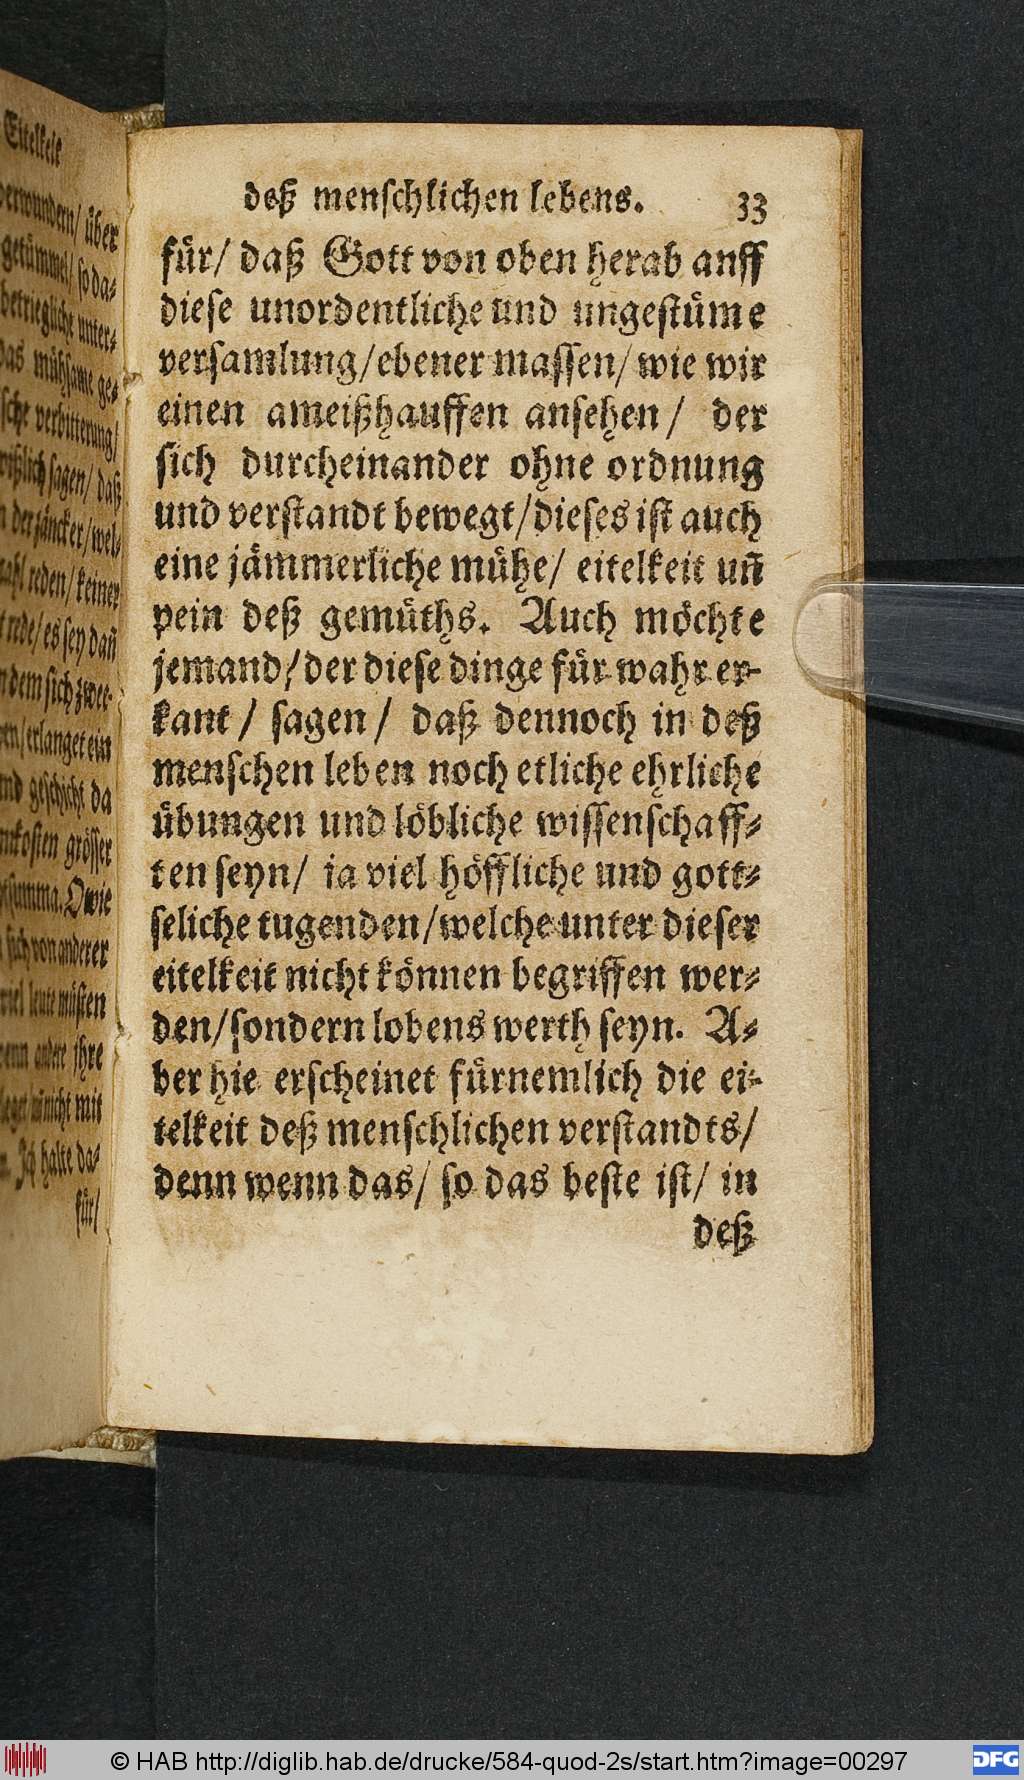 Eitelkeit
verwundern/ über
getümmel/ so da⸗
betrieglicht unter⸗
das mühsame ge⸗
sche verbitterung/
sagen/ daß
der zäncker/ wel⸗
reden/ keiner
rede/ es sey dañ
dem sich zwee⸗
erlanget ein
geschicht da
unkosten grösser
summa. O wie
sich von anderer
viel leute müsten
wenn andere jhre
nicht mit
Ich halte da⸗
für/
deß menschlichen lebens. 33
für/ daß Gott von oben herab anff
diese unordentliche und ungestüme
versamlung/ ebener massen/ wie wir
einen ameißhauffen ansehen/ der
sich durcheinander ohne ordnung
und verstandt bewegt/ dieses ist auch
eine jämmerliche mühe/ eitelkeit uñ
pein deß gemüths. Auch möchte
jemand/ der diese dinge für wahr er⸗
kant/ sagen/ daß dennoch in deß
menschen leben noch etliche ehrliche
übungen und löbliche wissenschaff⸗
ten seyn/ ia viel höffliche und gott⸗
seliche tugenden/ welche unter dieser
eitelkeit nicht können begriffen wer⸗
den/ sondern lobens werth seyn. A⸗
ber hie erscheinet fürnemlich die ei⸗
telkeit deß menschlichen verstandts/
denn wenn das/ so das beste ist/ in
deß
© HAB http://diglib.hab.de/drucke/584-quod-2s/start.htm?image=00297
DFG